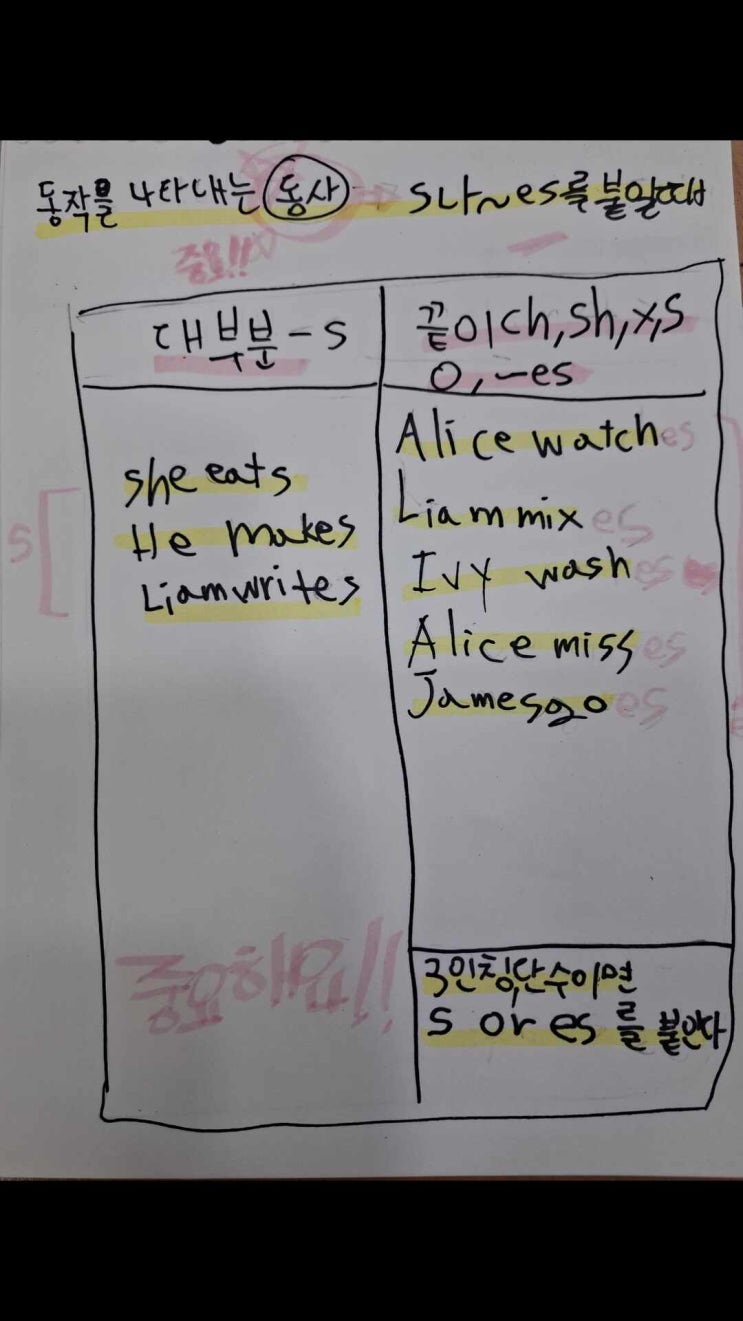 동작을 나타내는 동사 → s나~es를 붙일때
중요!!
대부분-s
끝이ch, sh, x, s
o, -es
s
she eats
He makes
Liam writes
Alice watches
Liam mixes
Ivy washes
Alice misses
James goes
중요해요!!
3인칭단수이면
s or es를 붙인다